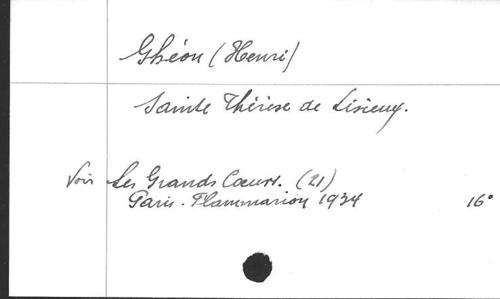 Ghéon (Henri)
Sainte Thérèse de Lisieux.
Voir Les Grands Cœurs. (21)
Paris. Flammarion 1934 16°